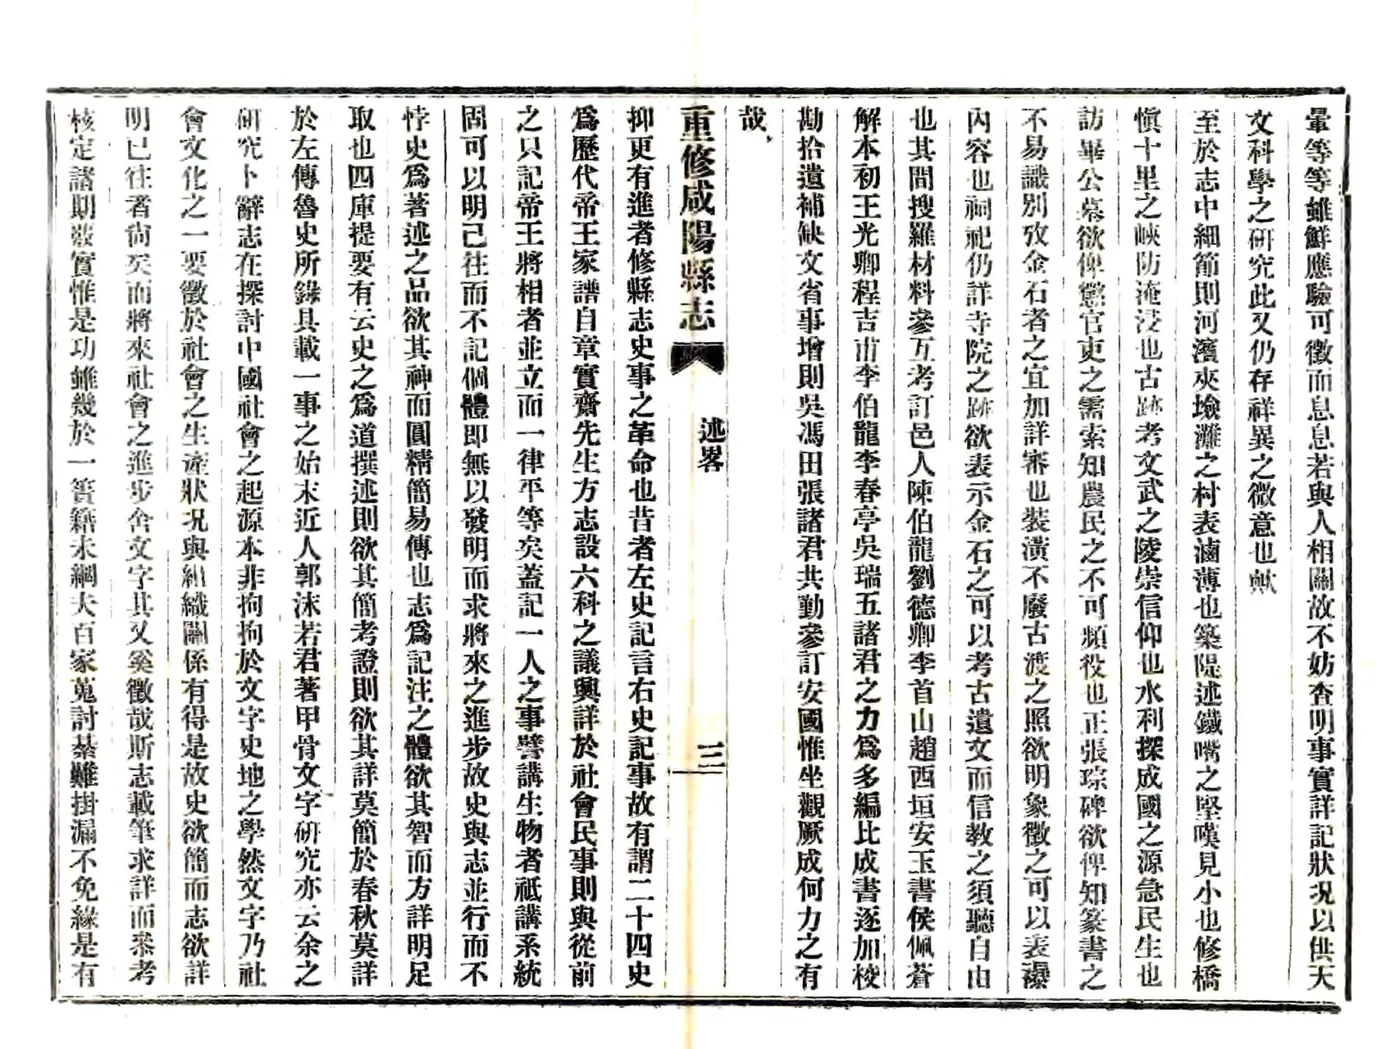 暈等等雖鮮應驗可徵而息息若與人相關故不妨查明事實詳記狀況以供天
文科學之研究此又仍存祥異之微意也歟
至於志中細節則河濱夾堬灘之村表滷薄也築隄述鐵嘴之堅嘆見小也修橋
愼十里之峽防淹浸也古跡考文武之陵崇信仰也水利探成國之源急民生也
訪畢公墓欲俾懲官吏之需索知農民之不可頻役也正張琮碑欲俾知篆書之
不易識別攷金石者之宜加詳審也裝潢不廢古渡之照欲明象徵之可以表瀑
內容也祠祀仍詳寺院之跡欲表示金石之可以考古遺文而信教之須聽自由
也其間搜羅材料參互考訂邑人陳伯龍劉德卿李首山趙西垣安玉書侯佩蒼
解本初王光卿程吉甫李伯龍李春亭吳瑞五諸君之力爲多編比成書逐加校
勘拾遺補缺文省事增則吳馮田張諸君共勤參訂安國惟坐觀厥成何力之有
哉
重修咸陽縣志
述畧
三
抑更有進者修縣志史事之革命也昔者左史記言右史記事故有謂二十四史
爲歷代帝王家譜自章實齋先生方志設六科之議興詳於社會民事則與從前
之只記帝王將相者並立而一律平等矣蓋記一人之事譬講生物者祗講系統
固可以明已往而不記個體即無以發明而求將來之進步故史與志並行而不
悖史爲著述之品欲其神而圓精簡易傳也志爲記注之體欲其智而方詳明足
取也四庫提要有云史之爲道撰述則欲其簡考證則欲其詳莫簡於春秋莫詳
於左傳魯史所錄具載一事之始末近人郭沫若君著甲骨文字研究亦云余之
研究卜辭志在探討中國社會之起源本非拘拘於文字史地之學然文字乃社
會文化之一要徵於社會之生產狀況與組織關係有得是故史欲簡而志欲詳
明已往者尙矣而將來社會之進步舍文字其又奚徵哉斯志載筆求詳而悉考
核定諸期發實惟是功雖幾於一簣籍未綱夫百家蒐討綦難掛漏不免緣是有